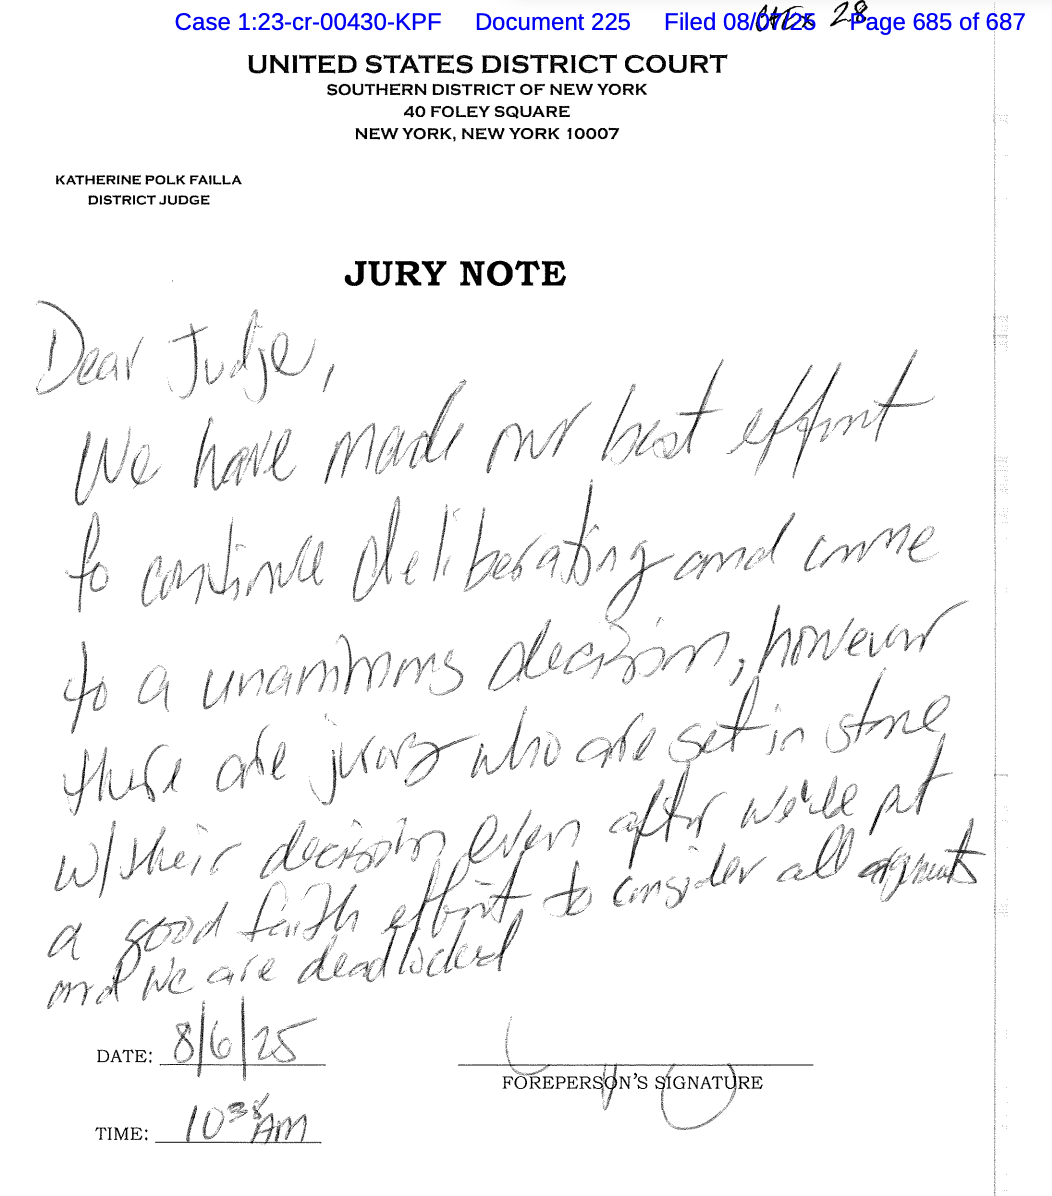 Case 1:23-cr-00430-KPF Document 225 Filed 08/07/25 Page 685 of 687
28
UNITED STATES DISTRICT COURT
SOUTHERN DISTRICT OF NEW YORK
40 FOLEY SQUARE
NEW YORK, NEW YORK 10007
KATHERINE POLK FAILLA
DISTRICT JUDGE
JURY NOTE
Dear Judge,
We have made our best effort
to continue deliberating and come
to a unanimous decision, however
there are jurors who are set in stone
w/ their decision even after we've put
a good faith effort to consider all arguments
and we are deadlocked
DATE: 8/6/25
FOREPERSON'S SIGNATURE
TIME: 10:38 AM